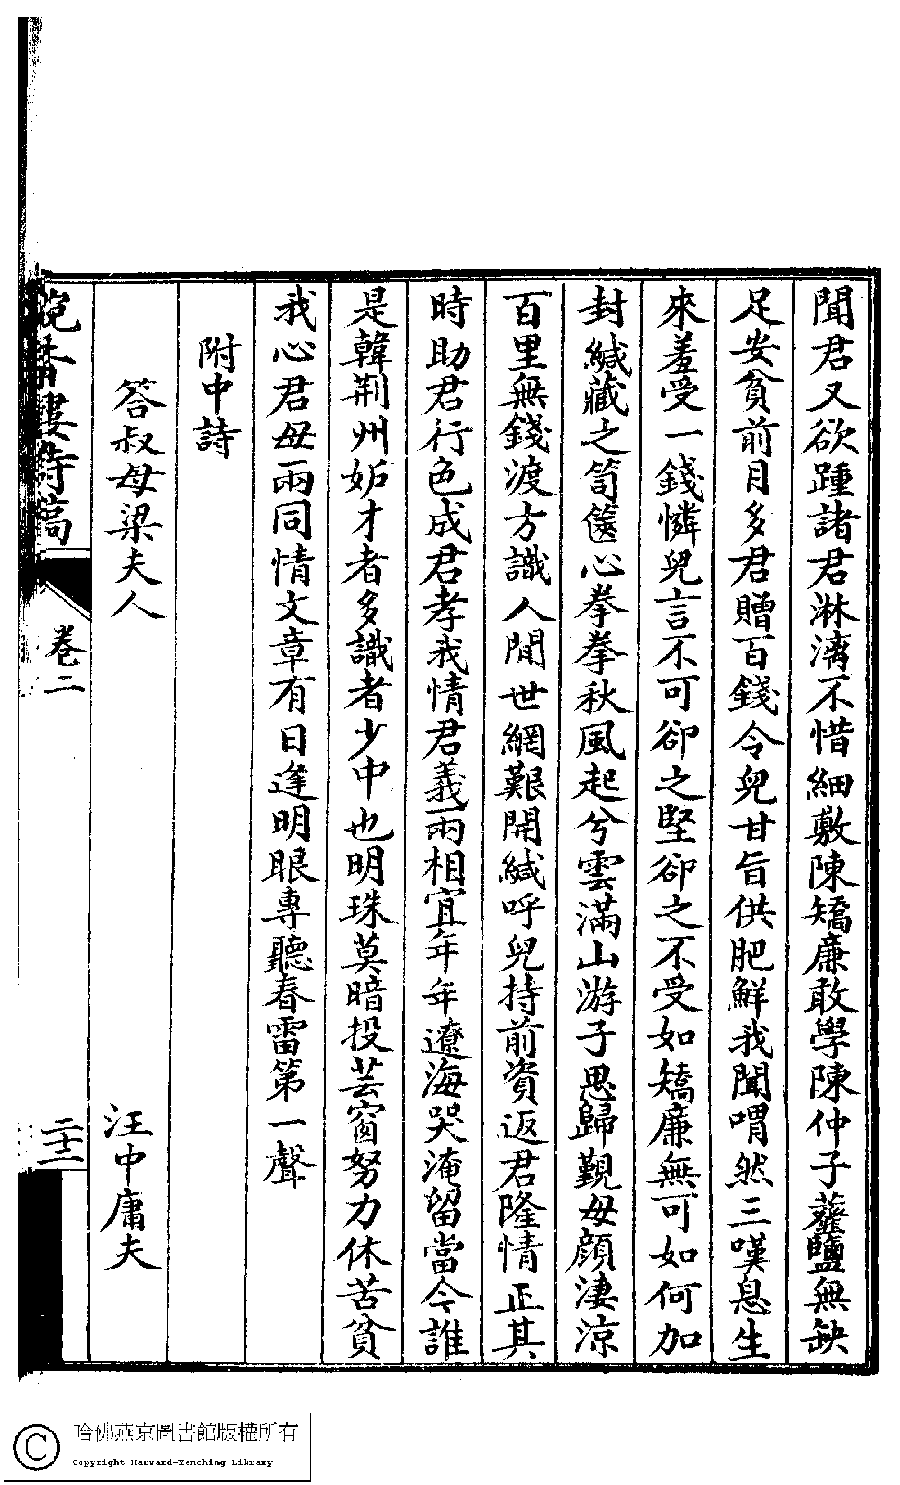 聞君又欲踵諸君淋漓不惜細敷陳矯廉敢學陳仲子虀鹽無缺
足安貧前月多君贈百錢令兒甘旨供肥鮮我聞喟然三嘆息生
來羞受一錢憐兒言不可卻之堅卻之不受如矯廉無可如何加
封緘藏之笥篋心拳拳秋風起兮雲滿山游子思歸覲母顔淒涼
百里無錢渡方識人間世網艱開緘呼兒持前資返君隆情正其
時助君行色成君孝我情君義兩相宜年年遼海哭淹留當今誰
是韓荆州妬才者多識者少中也明珠莫暗投芸窗努力休苦貧
我心君母兩同情文章有日逢明眼專聽春雷第一聲
附中詩
答叔母梁夫人
汪中庸夫
晚香樓詩稿
卷二
二十二
哈佛燕京圖書館版權所有
Copyright Harvard-Yenching Library